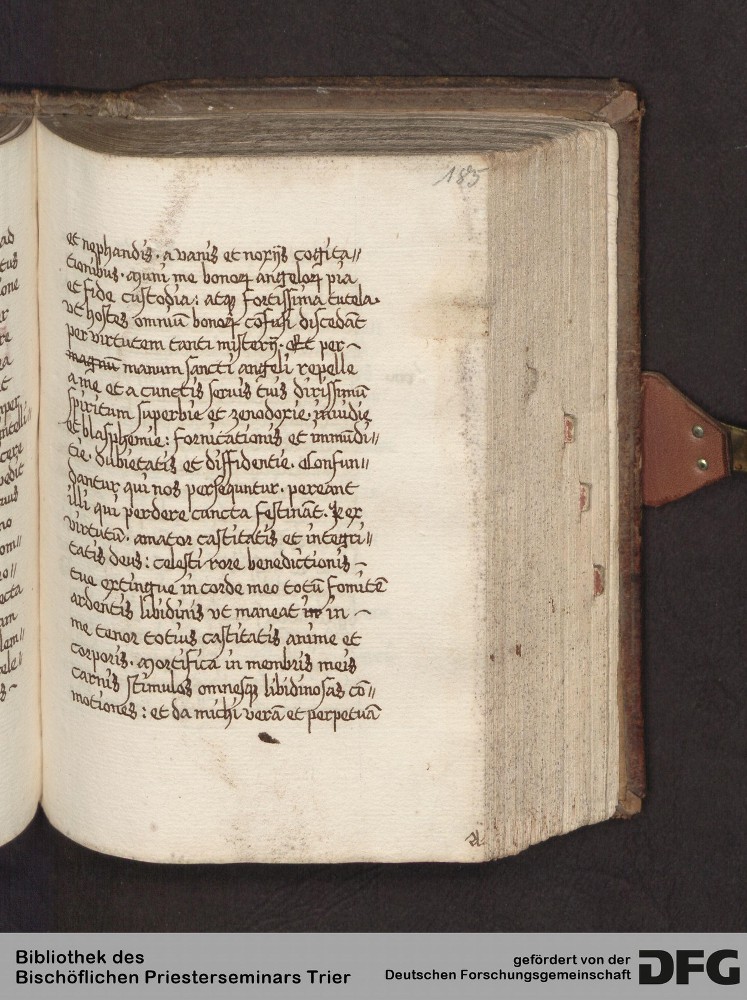 185
et nephandis · a vanis et noxijs cogita//
tionibus · muni me bonoꝝ angeloꝝ pia
et fide custodia : atqꝫ fortissima tutela ·
vt hostes omniū bonoꝝ cōfusi discedāt
per virtutem tanti misterij · Et per
magnū manum sancti angeli repelle
a me et a cunctis seruis tuis dirissimū
spiritum superbie et zenodoxie · inuidie
et blasphemie : fornicationis et immūdi//
tie · dubietatis et diffidentie · Confun//
dantur qui nos persequntur · pereant
illi qui perdere cuncta festināt · Rex
virtutū · amator castitatis et integri//
tatis deus : celesti rore benedictionis
tue extingue in corde meo totū fomitē
ardentis libidinis vt maneat in in
me tenor totius castitatis anime et
corporis · mortifica in membris meis
carnis stimulos omnesqꝫ libidinosas cō//
motiones : et da michi verā et perpetuā
Bibliothek des
Bischöflichen Priesterseminars Trier
gefördert von der
Deutschen Forschungsgemeinschaft DFG